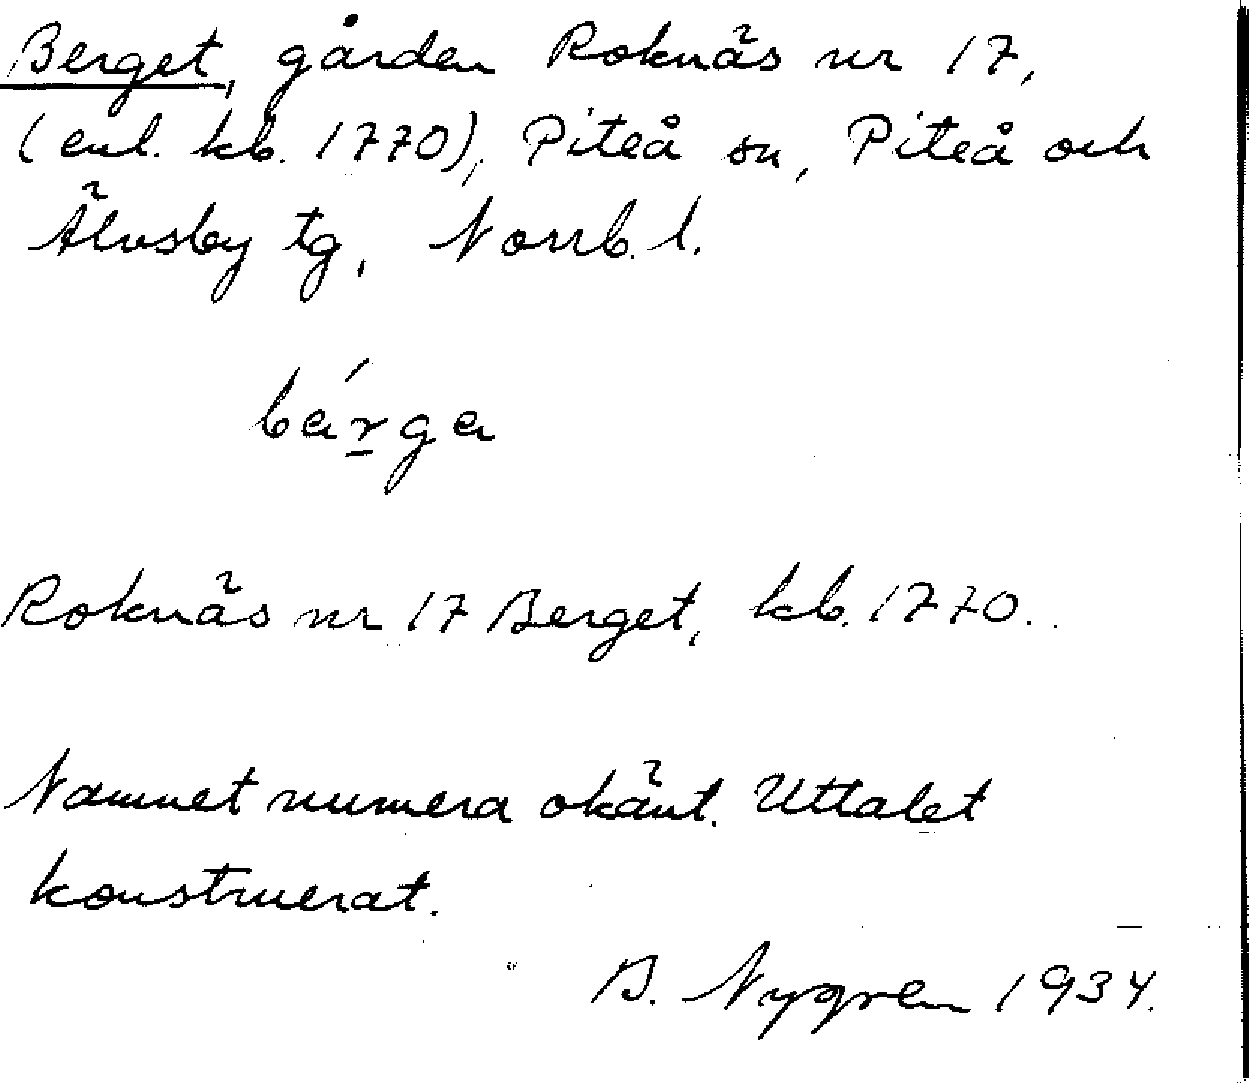 Berget, gården Roknäs nr 17,
(enl. kb. 1770), Piteå sn, Piteå och
Älvsby tg, Norrb. l.
bárga
Roknäs nr 17 Berget, kb. 1770.
Namnet numera okänt. Uttalet
konstruerat.
B. Nygren 1934.